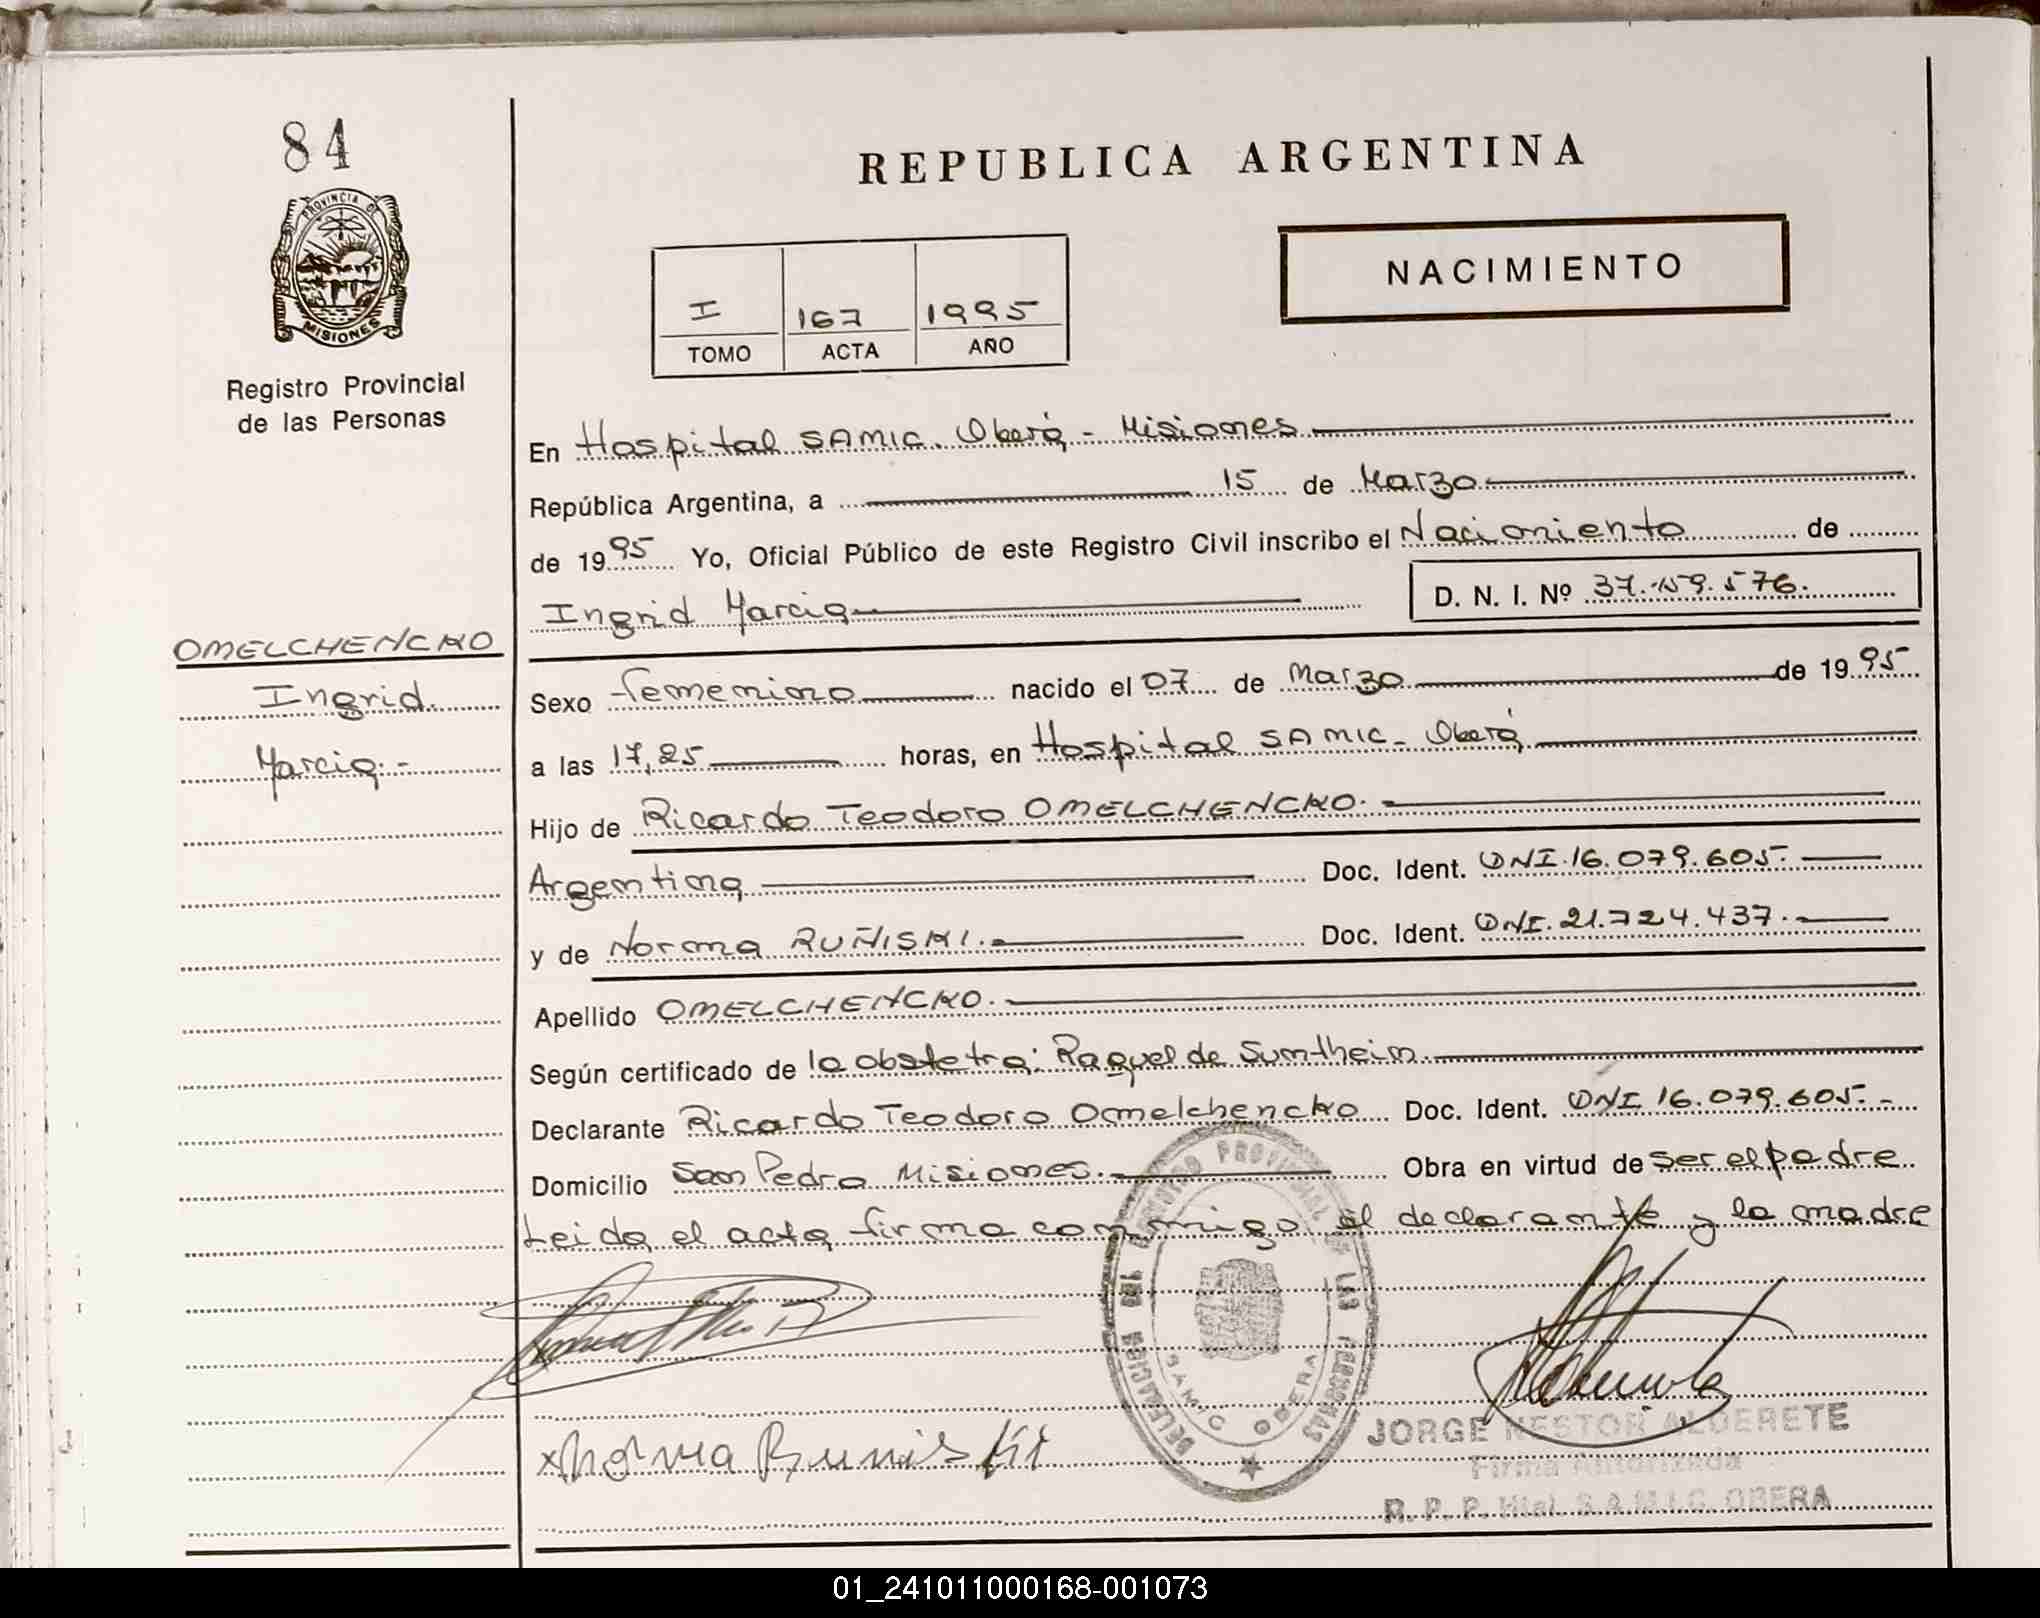 84
PROVINCIA DE
MISIONES
Registro Provincial
de las Personas
REPUBLICA ARGENTINA
NACIMIENTO
I 167 1995
TOMO ACTA AÑO
En Hospital SAMIC. Oberá - Misiones
República Argentina, a 15 de Marzo
de 1995 Yo, Oficial Público de este Registro Civil inscribo el Nacimiento de
Ingrid Marcia D. N. I. Nº 37.159.576.
OMELCHENCKO
Ingrid
Marcia.-
Sexo femenino nacido el 07 de Marzo de 1995
a las 17,25 horas, en Hospital SAMIC - Oberá
Hijo de Ricardo Teodoro OMELCHENCKO.
Argentina Doc. Ident. DNI.16.079.605.
y de Norma RUÑISKI. Doc. Ident. DNI.21.724.437.
Apellido OMELCHENCKO.
Según certificado de la obstetra: Raquel de Sumtheim
Declarante Ricardo Teodoro Omelchencko Doc. Ident. DNI 16.079.605.-
Domicilio San Pedro Misiones. Obra en virtud de ser el padre
Leida el acta firma conmigo el declarante y la madre
DELEGACION DEL REGISTRO PROVINCIAL DE LAS PERSONAS
SAMIC OBERA
x Norma Runiski
JORGE NESTOR ALDERETE
Firma Autorizada
R. P. P. Htal. S.A.M.I.C. OBERA
01_241011000168-001073